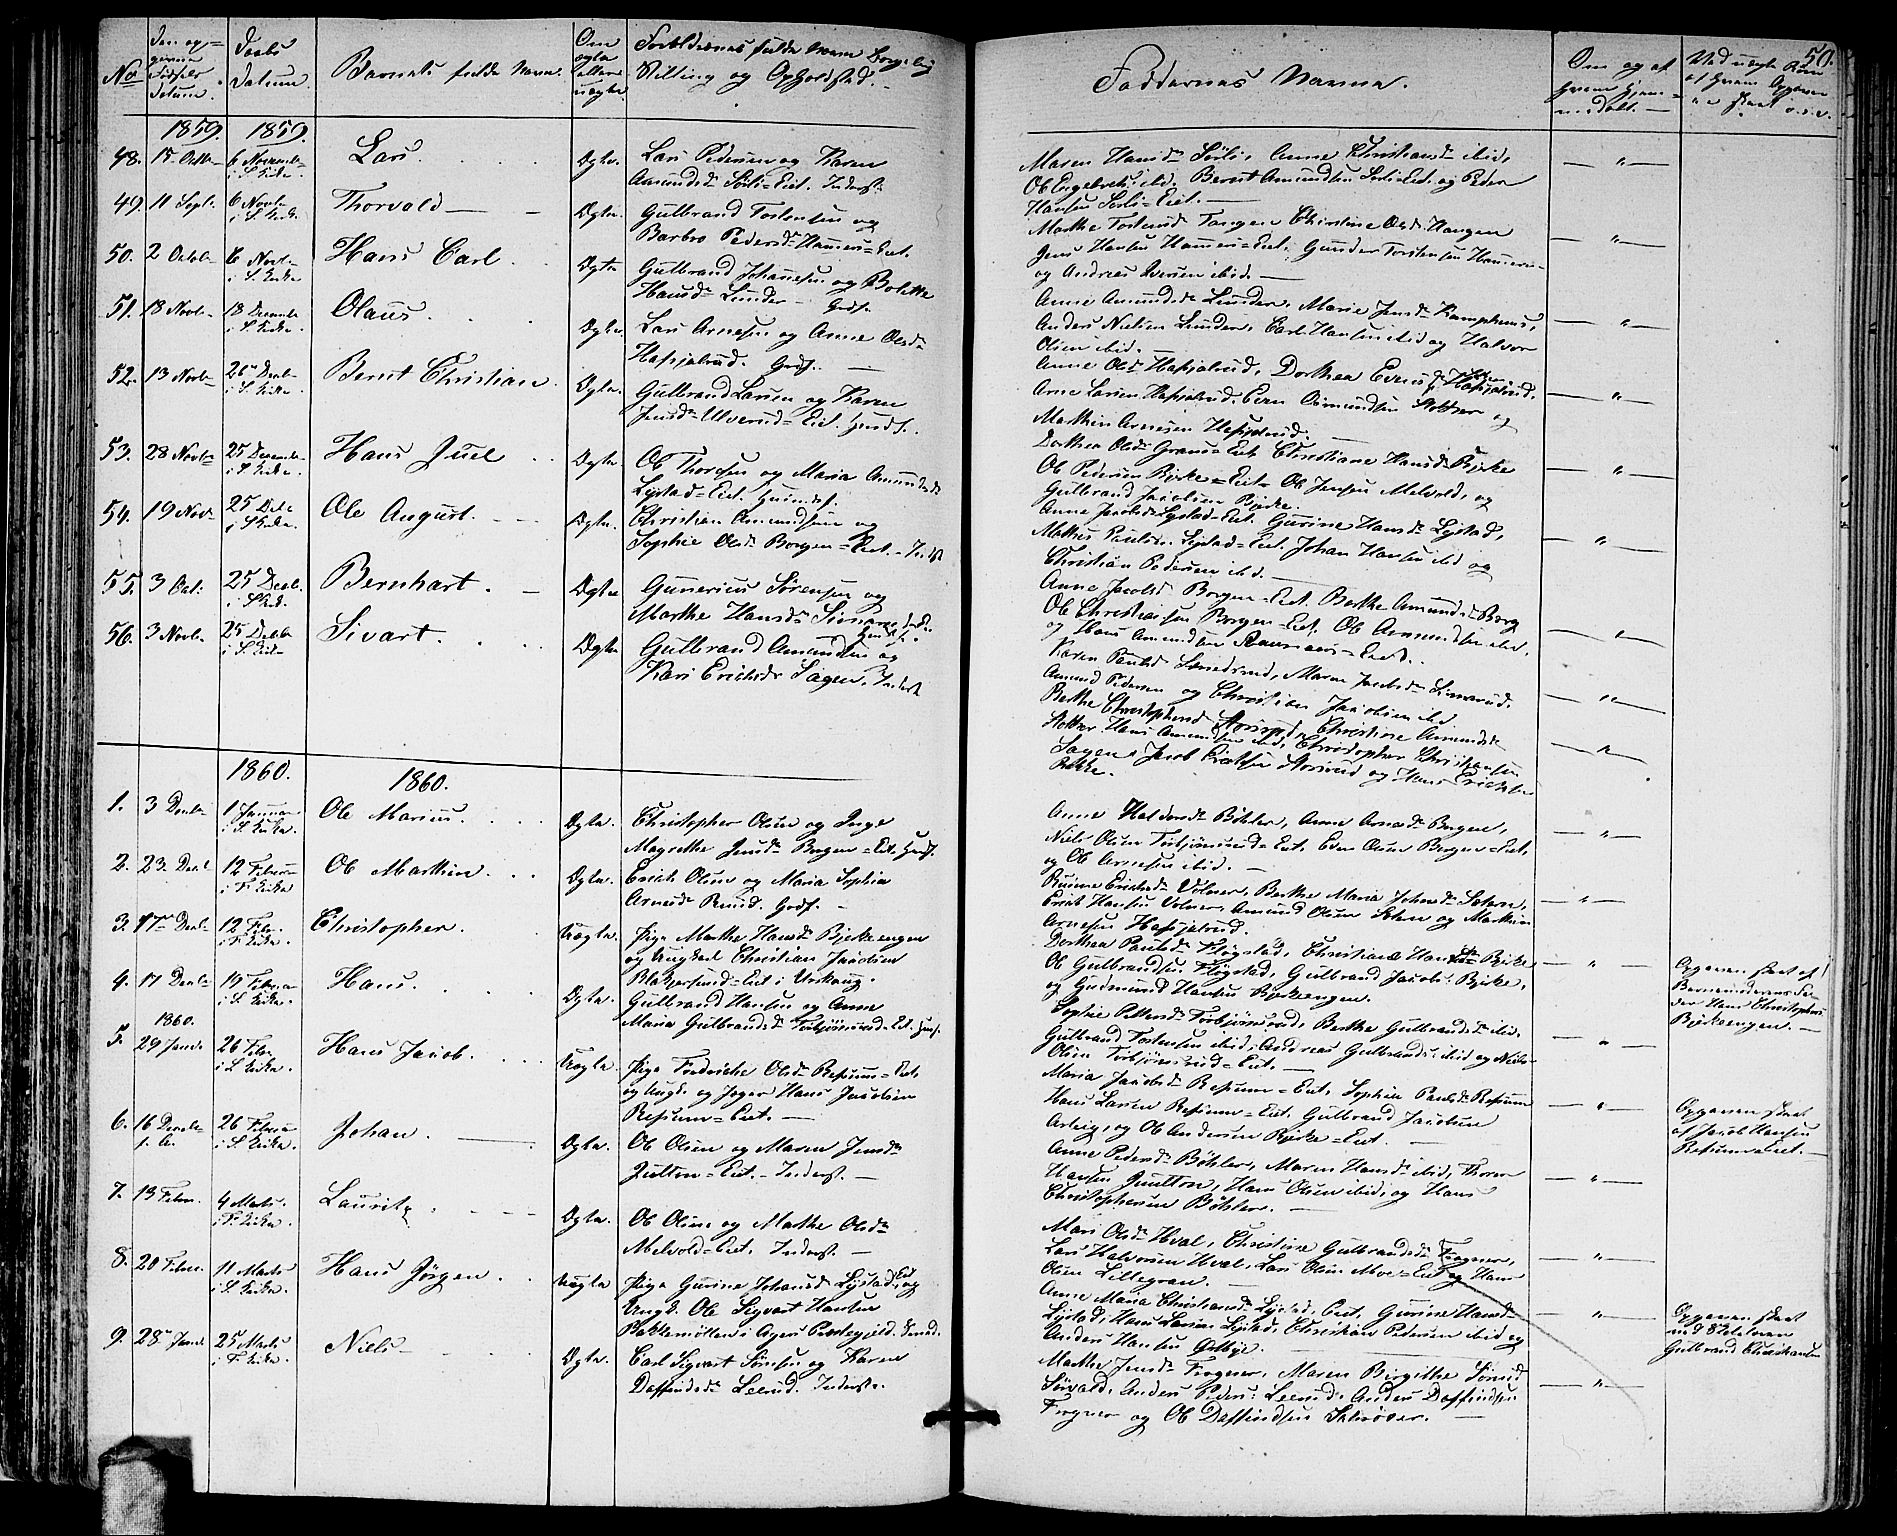 No
Den op-
givne
Fødsels
Datum.
Daabs
Datum.
Barnets fulde Navn.
Om
ægte
eller
uægte.
Forældrenes fulde Navn Borgerlig
Stilling og Opholdsted.
1859. 1859.
48. 15 Octbr 6 November
i S. Kirke.
Lars.
Ægte.
Lars Pedersen og Karen
Amundsdr Sørli=Eiet. Inderst.
49. 11 Septr 6 Novbr
i S. Kirke.
Thorvald
Ægte.
Gulbrand Tostensen og
Barbro Pedersdr Hammers=Eiet.
50. 2 Octobr 6 Novbr
i S. Kirke
Hans Carl.
Ægte
Gulbrand Johannesen og Bolette
Hansdr Lunder Grdf.
51. 18 Novbr 18 December
i S. Kirke.
Olaus.
Ægte.
Lars Arnesen og Anne Olsdr
Hafsjelrud. Grdf.
52. 13 Novbr 26 Decbr
i S. Kirke.
Bernt Christian.
Ægte.
Gulbrand Larsen og Karen
Jensdr Ulverud=Eiet. Husf.
53. 28 Novbr 25 December
i S. Kirke.
Hans Juel
Ægte.
Ole Thoresen og Maria Amundsdr
Lystad=Eiet.
54. 19 Novbr 25 Decbr
i S. Kirke.
Ole August.
Ægte.
Christian Amundsen og
Sophie Olsdr Borgen=Eiet. Inderst
55. 3 Oct: 25 Decbr.
i S. Kirke.
Bernhart.
Ægte
Gunerius Sørensen og
Marthe Hansdr
56. 3 Novbr. 25 Decbr
i S. Kirke
Sivart.
Ægte
Gulbrand Amundsen og
Kari Erichsdr Sagen, Inderst
1860. 1860.
1. 3 Decbr 1 Januar
i S. Kirke.
Ole Marius.
Ægte.
Christopher Olsen og Inge
Magrethe Jensdr Borgen=Eiet. Husf.
2. 23 Decbr 12 Februar
i F. Kirke
Ole Martin.
Ægte.
Erich Olsen og Maria Sophia
Arnesdr Grdf.
3. 17 Decbr 12 Febr.
i F. Kirke.
Christopher.
Uægte.
Pige Marthe Hansdr Bjerkeengen
og Ungkarl Christian Jacobsen
Blakjersund=Eiet i Urskoug.
4. 17 Decbr 19 Februar
i S. Kirke.
Hans.
Ægte.
Gulbrand Hansen og Anne
Maria Gulbrandsdr Torbjørnsrud=Eiet. Husf.
1860.
5. 29 Janr. 26 Febr
i S. Kirke.
Hans Jacob.
Uægte.
Pige Fredrikke Olsdr Refsum=Eiet
og Ungk. og Jæger Hans Jacobsen
Refsum=Eiet.
6. 16 Decbr
f. A.
26 Februar
i S. Kirke.
Johan.
Ægte.
Ole Olsen og Maren Jensdr
Jultton=Eiet. Inderst.
7. 13 Febr. 4 Marts.
i F. Kirke.
Lauritz.
Ægte.
Ole Olsen og Marthe Olsdr
Melvold=Eiet. Inderst.
8. 20 Febr. 11 Marts
i S. Kirke.
Hans Jørgen.
Uægte
Pige Gurine Johansdr Lystad Eiet, og
Ungk. Ole Sigvart Hansen
i Agers Prestegjeld.
9. 28 Janr. 25 Marts
i F. Kirke.
Niels
Ægte.
Carl Sigvart og Karen
Daffindsdr Leerud. Inderst.
Faddernes Navne.
Om og af
hvem hjem-
medøbt.
Ved uægte Børn
af hvem Opgaven
er skeet o.s.v.
50.
Maren Hansdr Sørli, Anne Christiansdr ibid,
Ole Engebrets. ibid. Bernt Amundsen Sørli=Eiet, og Peder
Hansen Sørli=Eiet.
Marthe Tostensd Tangen Christine Olsdr Haugen
Jens Hansen Hammers=Eiet. Gunder Torstensen Hammers
og Andreas Iversen ibid.
Anne Amundsdr Lunder, Marie Jensdr Kamphuus,
Anders Nielsen Lunder, Carl Hansen ibid og Halvor
Olsen ibid.
Anne Olsdr Hafsjelrud, Dorthea Evensdr Hafsjelrud.
Arne Larsen Hafsjelrud. Even Amundsen og
Marthin Arnesen Hafsjelrud.
Dorthea Olsdr Eiet Christiane Hansdr Bjerke
Ole Pedersen Bjerke=Eiet Ole Jensen Melvold, og
Gulbrand Jacobsen Bjerke.
Anne Jacobsdr Lystad=Eiet. Gurine Hansdr Lystad,
Mathis Paulsen Lystad=Eiet. Johan Hansen ibid og
Christian Pedersen ibid.
Anne Jacobsdr Borgen=Eiet. Berthe Amundsdr Borg
Ole Christiansen Borgen=Eiet. Ole Amundsen ibid,
og Hans Amundsen Eiet.
Karen Paulsd Maren Jacobsdr
Amund Pedersen og Christian Jacobsen ibid
Berthe Christophersd Christine Amundsdr
Hans Amundsen ibid, Christopher Christiansen
Sagen, Jacob og Hans Erichsen
Bakke.
Anne Halvorsdr Böhler, Anne Arnesdr Borgen,
Niels Olsen Torbjørnsrud=Eiet. Even Olsen Borgen=Eiet,
og Ole Arnesen ibid.
Erichsdr Volner, Berthe Maria Johnsdr
Erich Hansen Volner, Amund Olsen og Martin
Arnesen Hafsjelrud.
Dorthea Paulsdr Fløgstad, Christiane Hansdr Bjerke
Ole Gulbrandsen Fløgstad, Gulbrand Jacobs. Bjerke,
og Gudmund Hansen Bjerkeengen.
Sophie Pettersdr Torbjørnsrud, Berthe Gulbrandsdr ibid.
Gulbrand Tostensen ibid, Andreas Gulbrands. ibid og Niels
Olsen Torbjörnsrud=Eiet.
Maria Jacobsdr Refsum=Eiet, Sophie Paulsdr Refsum
Hans Larsen Refsum=Eiet. Gulbrand Jacobsen
Arteig, og Ole Andersen Bjerke=Eiet.
Anne Pedersdr Böhler, Maren Hansdr ibid, Thorer
Hansen Jultton, Hans Olsen ibid, og Hans
Christophersen Böhler.
Mari Olsdr Hval, Christine Gulbrandsdr Frogner,
Lars Halvorsen Hval, Lars Olsen Moe=Eiet og Hans
Olsen Lillegraven.
Anne Maria Christiansdr Lystad, Eiet, Gurine Hansdr
Lystad, Hans Larsen Lystad, Christian Pedersen ibid og
Anders Hansen
Marthe Jensdr Frogner, Maren Birgithe
Anders Peders. Leerud, Anders Daffindsen
Frogner og Ole Daffindsen
Opgaven skeet af
Barnemoderens Fa-
der Hans Christophers.
Bjerkeengen.
Opgaven skeet
af Jacob Hansen
Refsum Eiet.
Opgaven skeet
ved Skolelærer
Gulbrand Christiansen